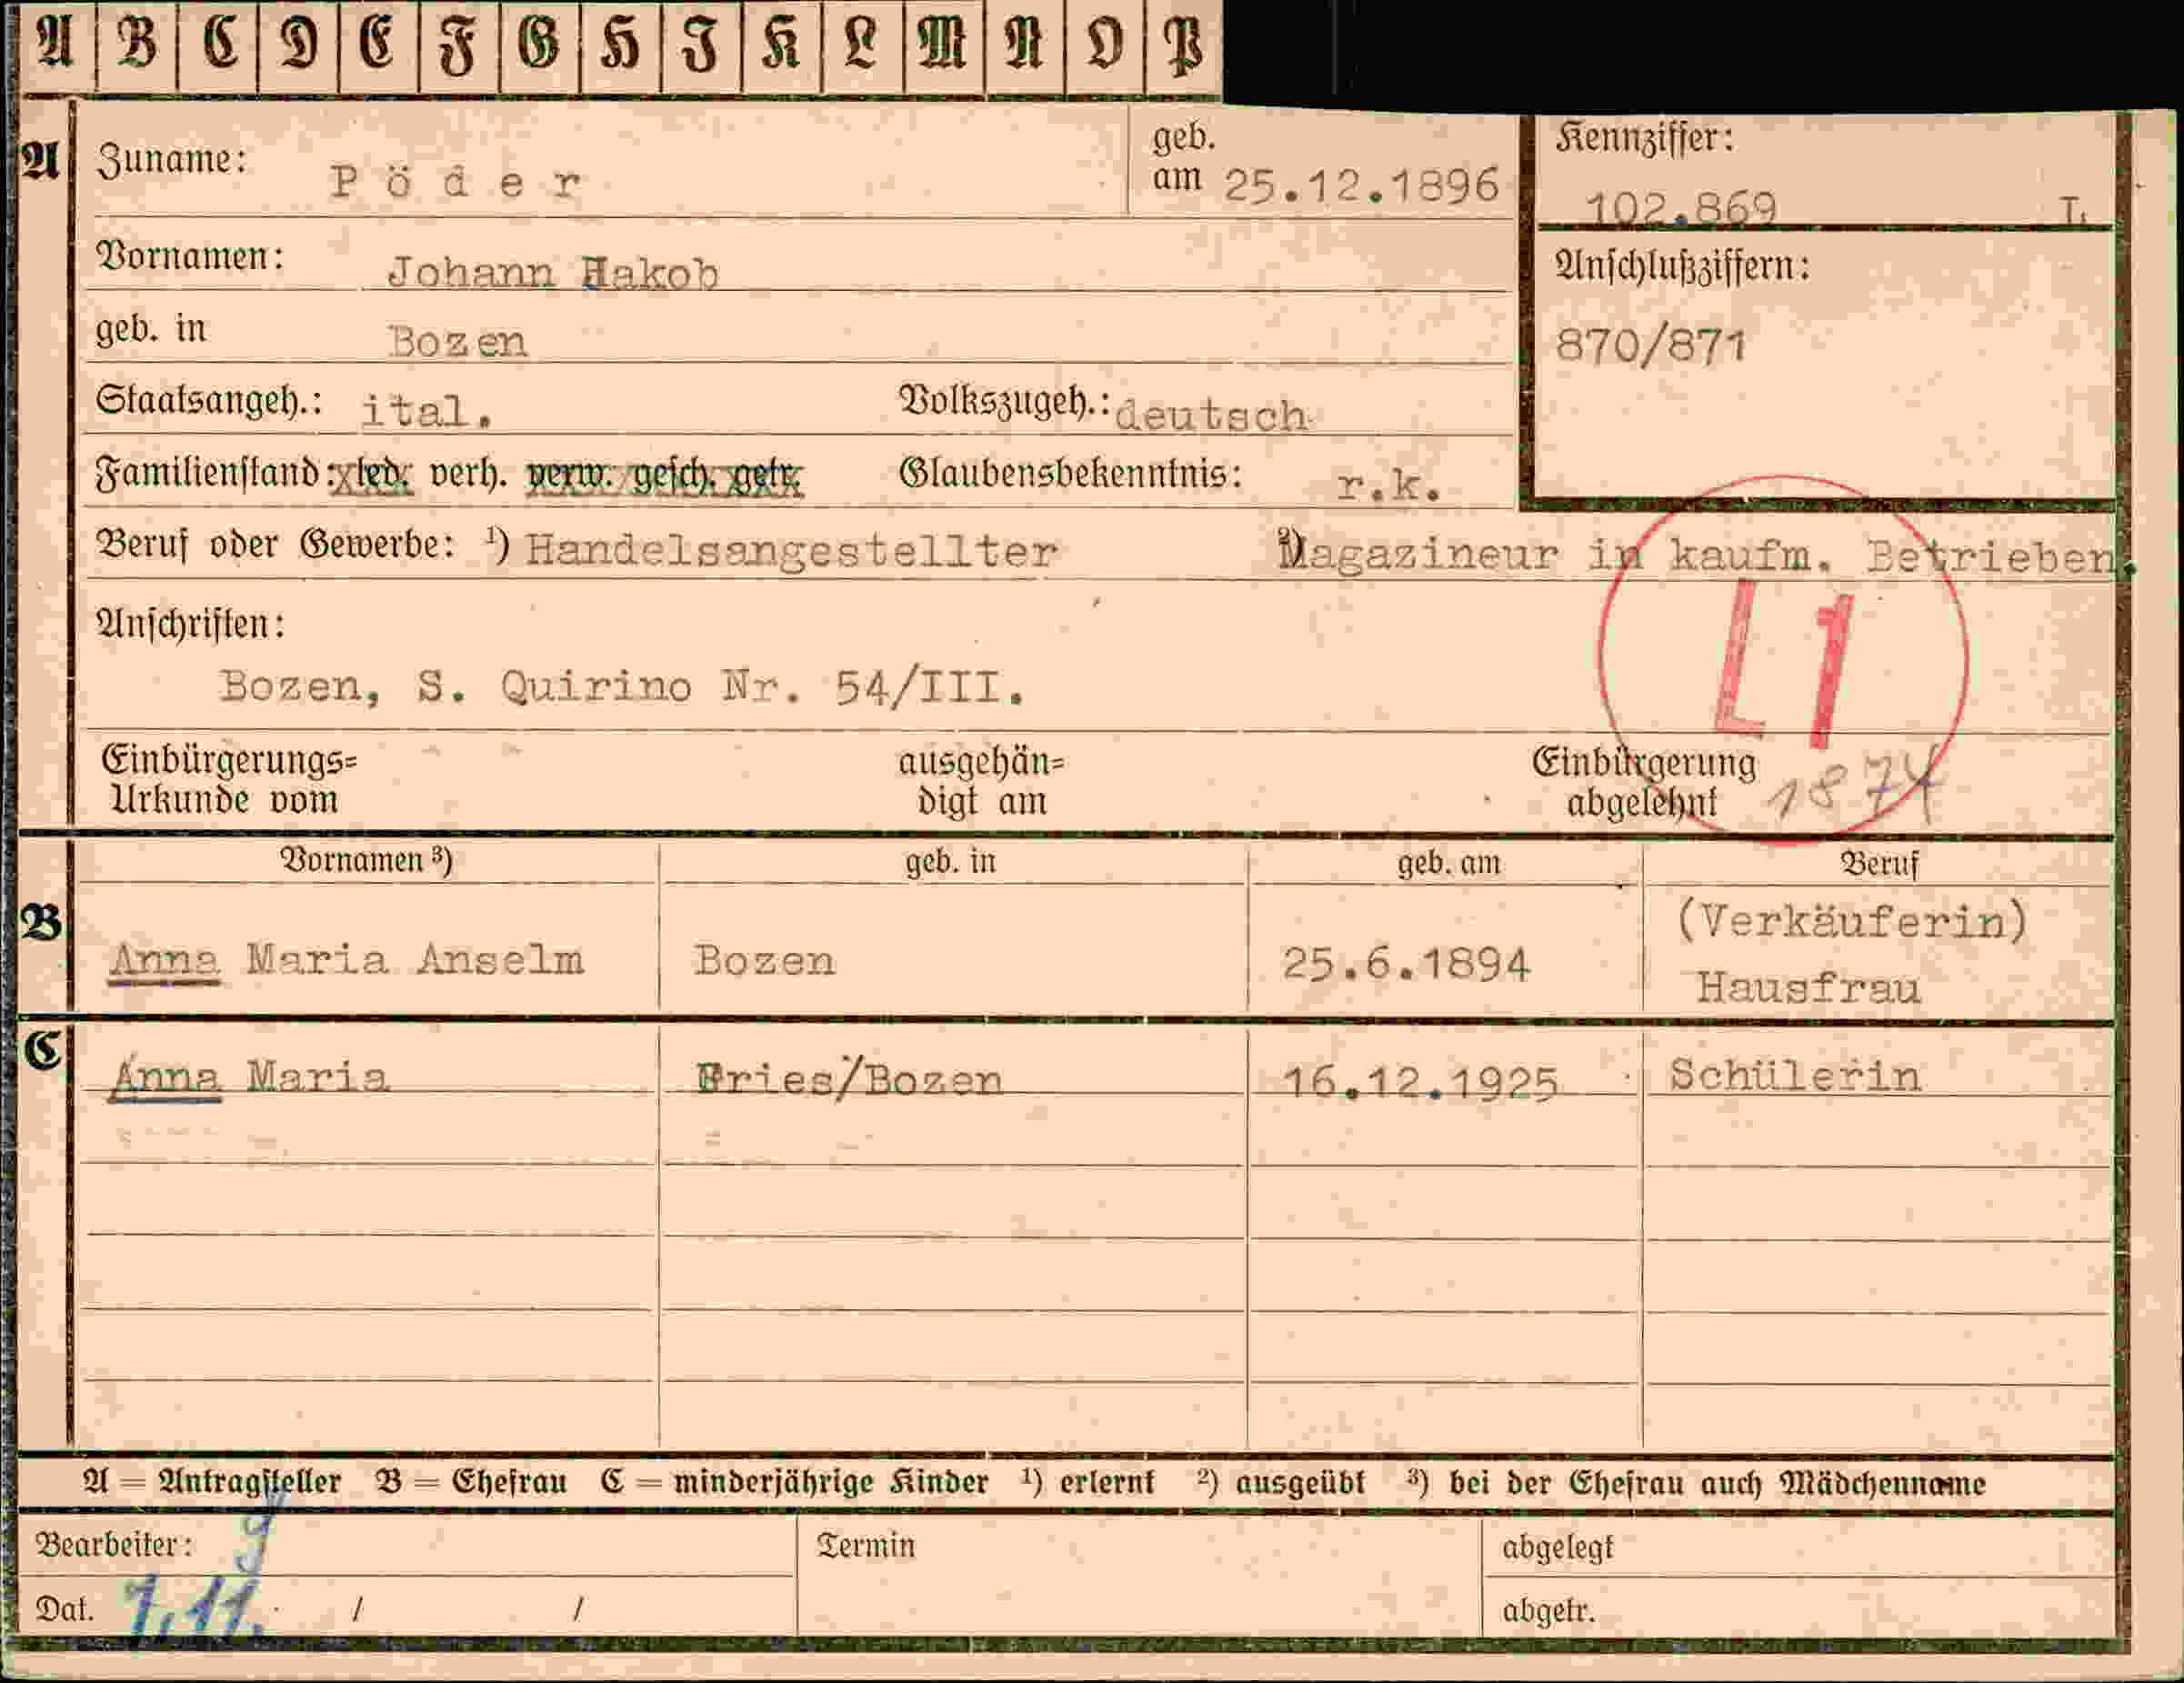 A B C D E F G H I K L M N O P
A Zuname: Pöder geb. am 25.12.1896
Kennziffer: 102.869 I.
Vornamen: Johann Hakob
Anschlußziffern:
geb. in Bozen
870/871
Staatsangeh.: ital. Volkszugeh.: deutsch
Familienstand: led. verh. verw. gesch. getr. Glaubensbekenntnis: r.k.
Beruf oder Gewerbe: ¹) Handelsangestellter ²) Magazineur in kaufm. Betrieben.
Anschriften:
L1
Bozen, S. Quirino Nr. 54/III.
Einbürgerungs= ausgehän= Einbürgerung
Urkunde vom digt am abgelehnt 1874
Vornamen ³) geb. in geb. am Beruf
B Anna Maria Anselm Bozen 25.6.1894 (Verkäuferin)
Hausfrau
C Anna Maria Gries/Bozen 16.12.1925 Schülerin
A = Antragsteller B = Ehefrau C = minderjährige Kinder ¹) erlernt ²) ausgeübt ³) bei der Ehefrau auch Mädchenname
Bearbeiter: Termin abgelegt
Dat. 7.11. / / abgetr.